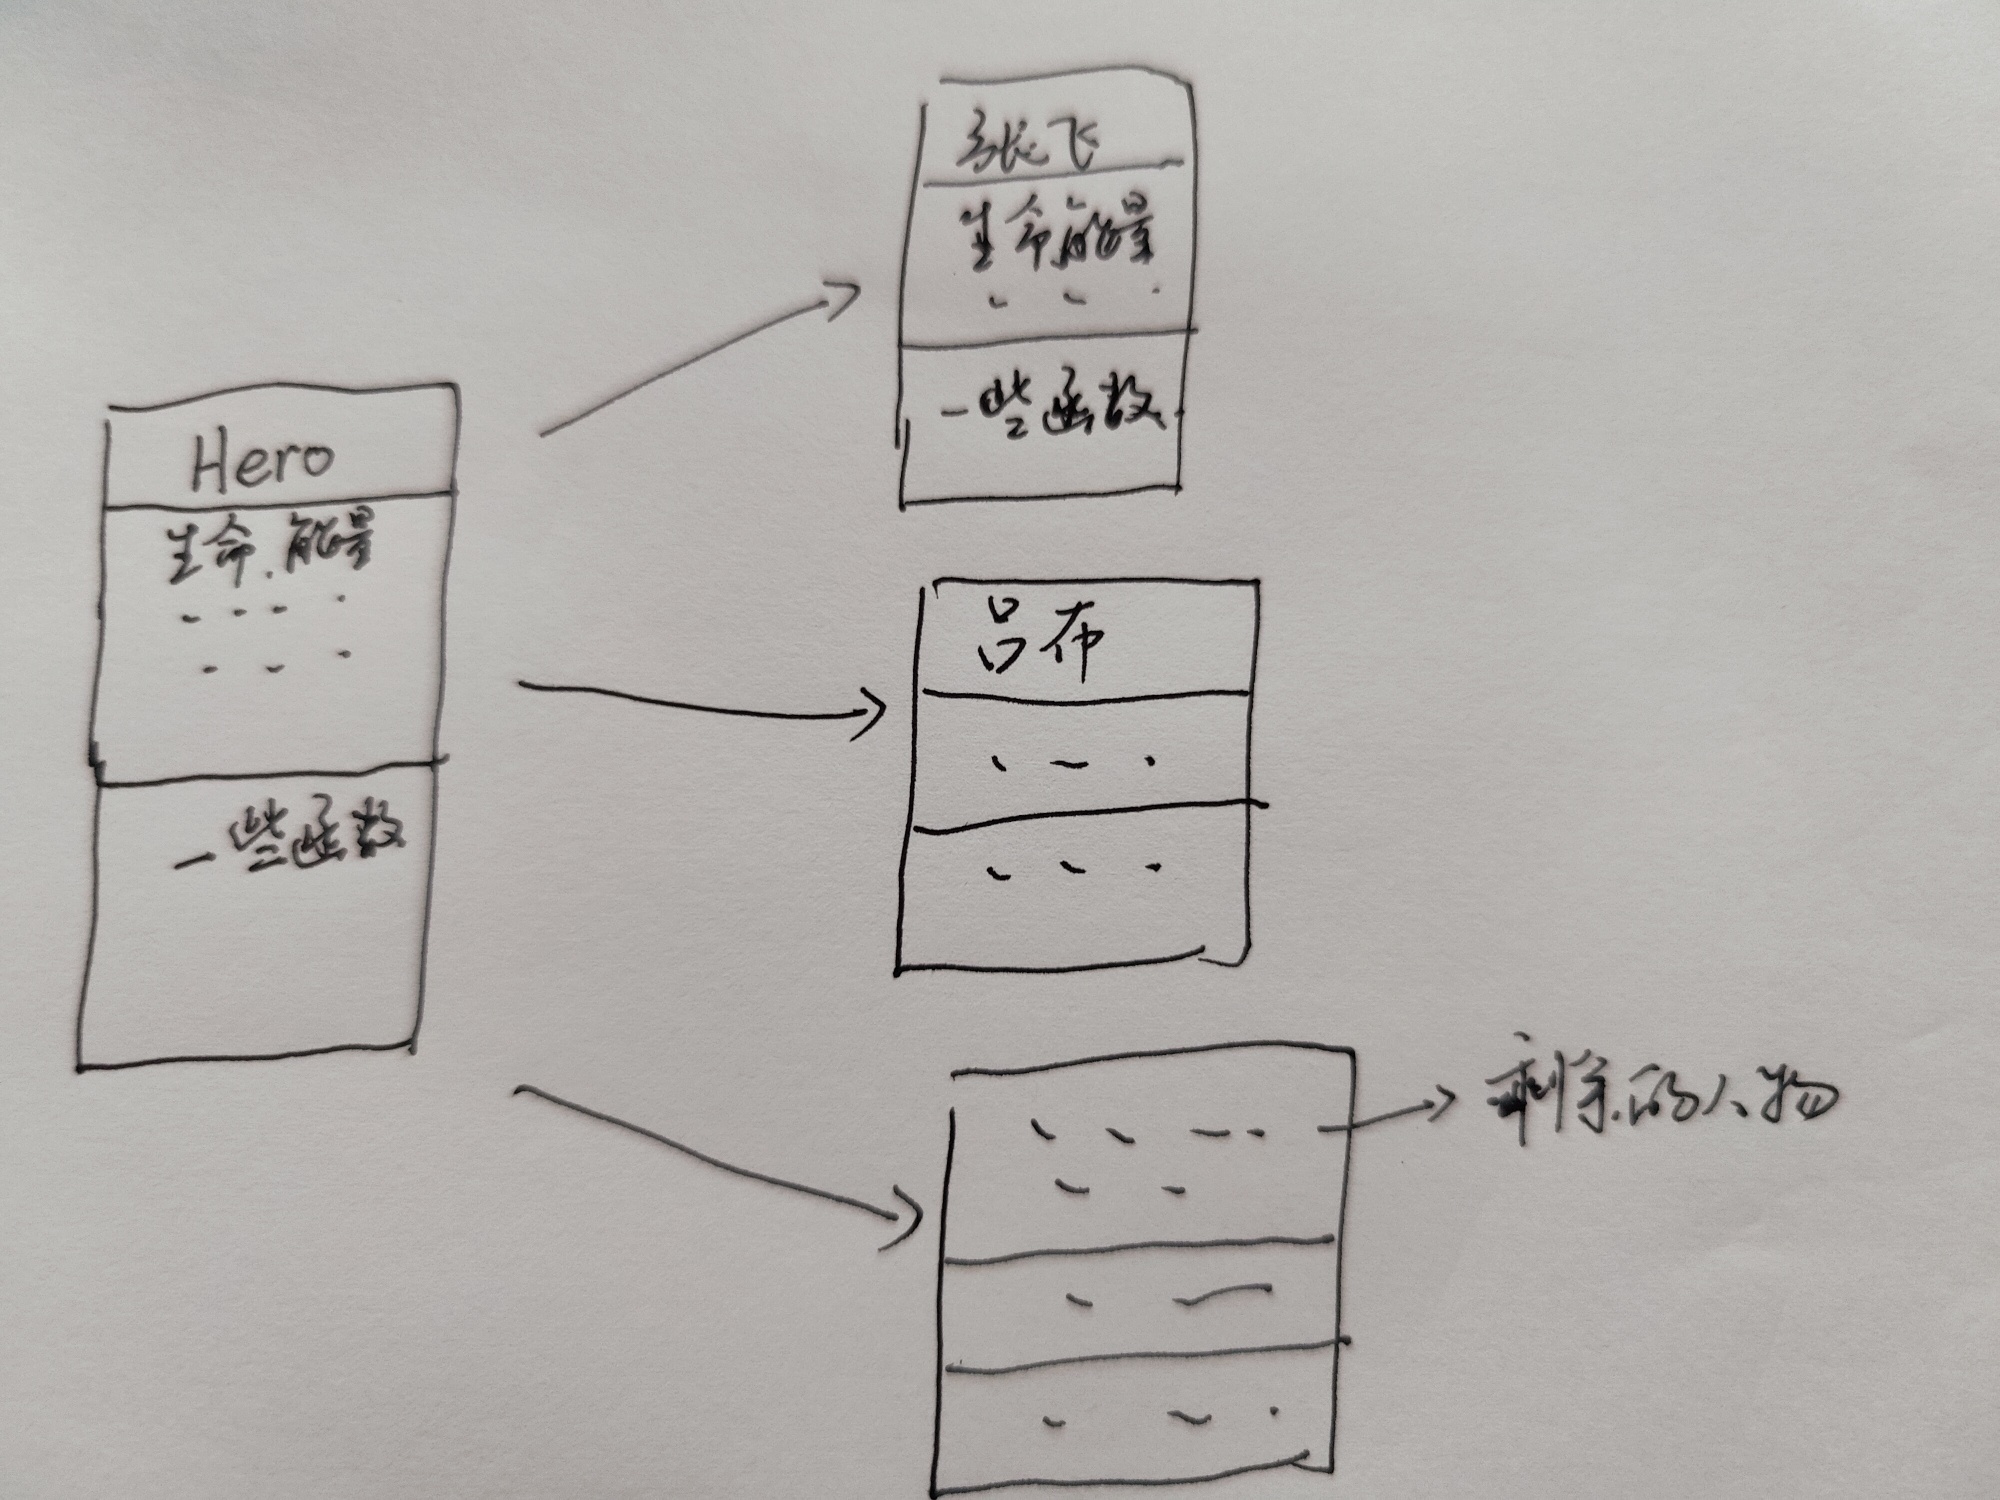 Hero
生命.能量
一些函数
张飞
生命能量
一些函数
吕布
剩余的人物